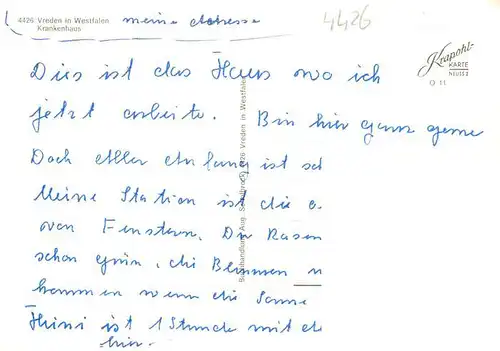 4426 Vreden in Westfalen
Krankenhaus
meine Adresse
4426
Krapohl-
KARTE
NEUSS 2
O 11
Dies ist das Haus wo ich
jetzt arbeite. Bin hier ganz gerne
Doch aller Anfang ist sch
Meine Station ist die
von Fenstern. Der Rasen
schon grün, die Blumen
kommen wenn die Sonne
ist 1 Stunde mit d
hier.
Buchhandlung Aug. 4426 Vreden in Westfalen